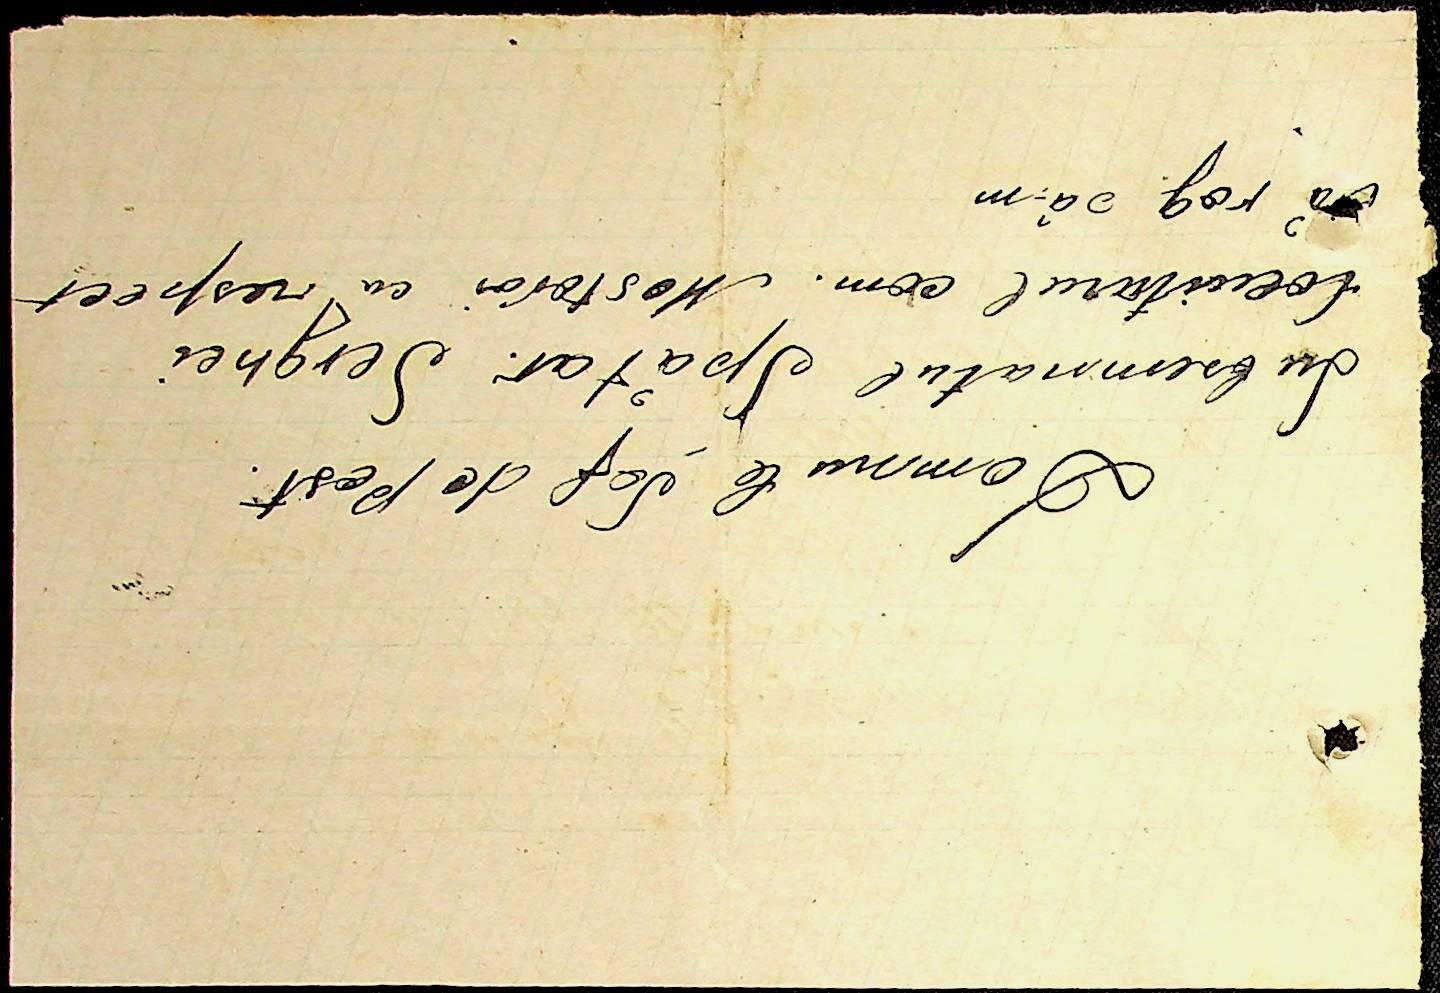 Domnule Șef de Post.
Subsemnatul Spătar. Serghei
Locuitorul com. cu respect
vă rog să-m